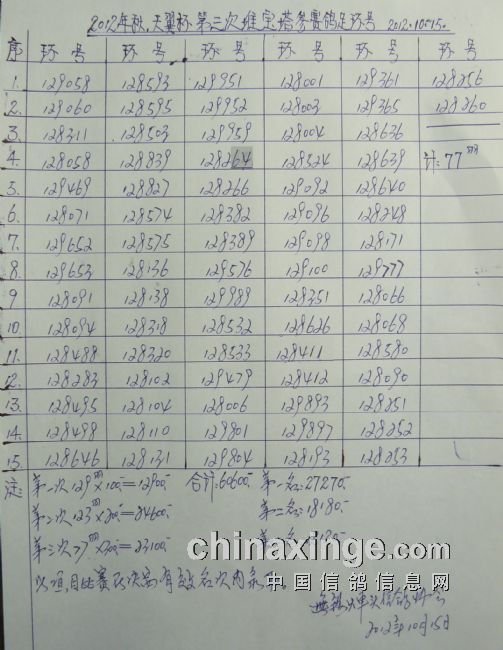 2012年秋.天翼杯第三次维宝塔参赛鸽足环号 2012.10.15.
序 环号 环号 环号 环号 环号 环号
1. 129058 128593 129951 128001 129361 128256
2. 129060 128595 129952 128003 129365 128260
3. 128311 128503 129959 128004 128636
4. 128058 128839 128264 128524 128639 计:77羽
5. 129469 128827 128266 129092 128640
6. 128071 128574 128382 129096 128248
7. 129652 128575 128389 129098 128171
8. 129653 128136 129576 129100 129777
9 128091 128138 129989 128351 128066
10 128094 128318 128532 128626 128068
11. 128488 128320 128533 128411 128580
12. 128283 128102 129479 128412 128090
13. 128495 128104 128006 129893 128251
14. 128498 128110 129801 129897 128252
15. 128646 128131 129804 128193 128253
注: 第一次129羽×100=12900 合计:60600 第一名:27270
第二次123羽×200=24600 第二名:18180
第三次77羽×300=23100
chinaxinge.com
中国信鸽信息网
2012年10月15日